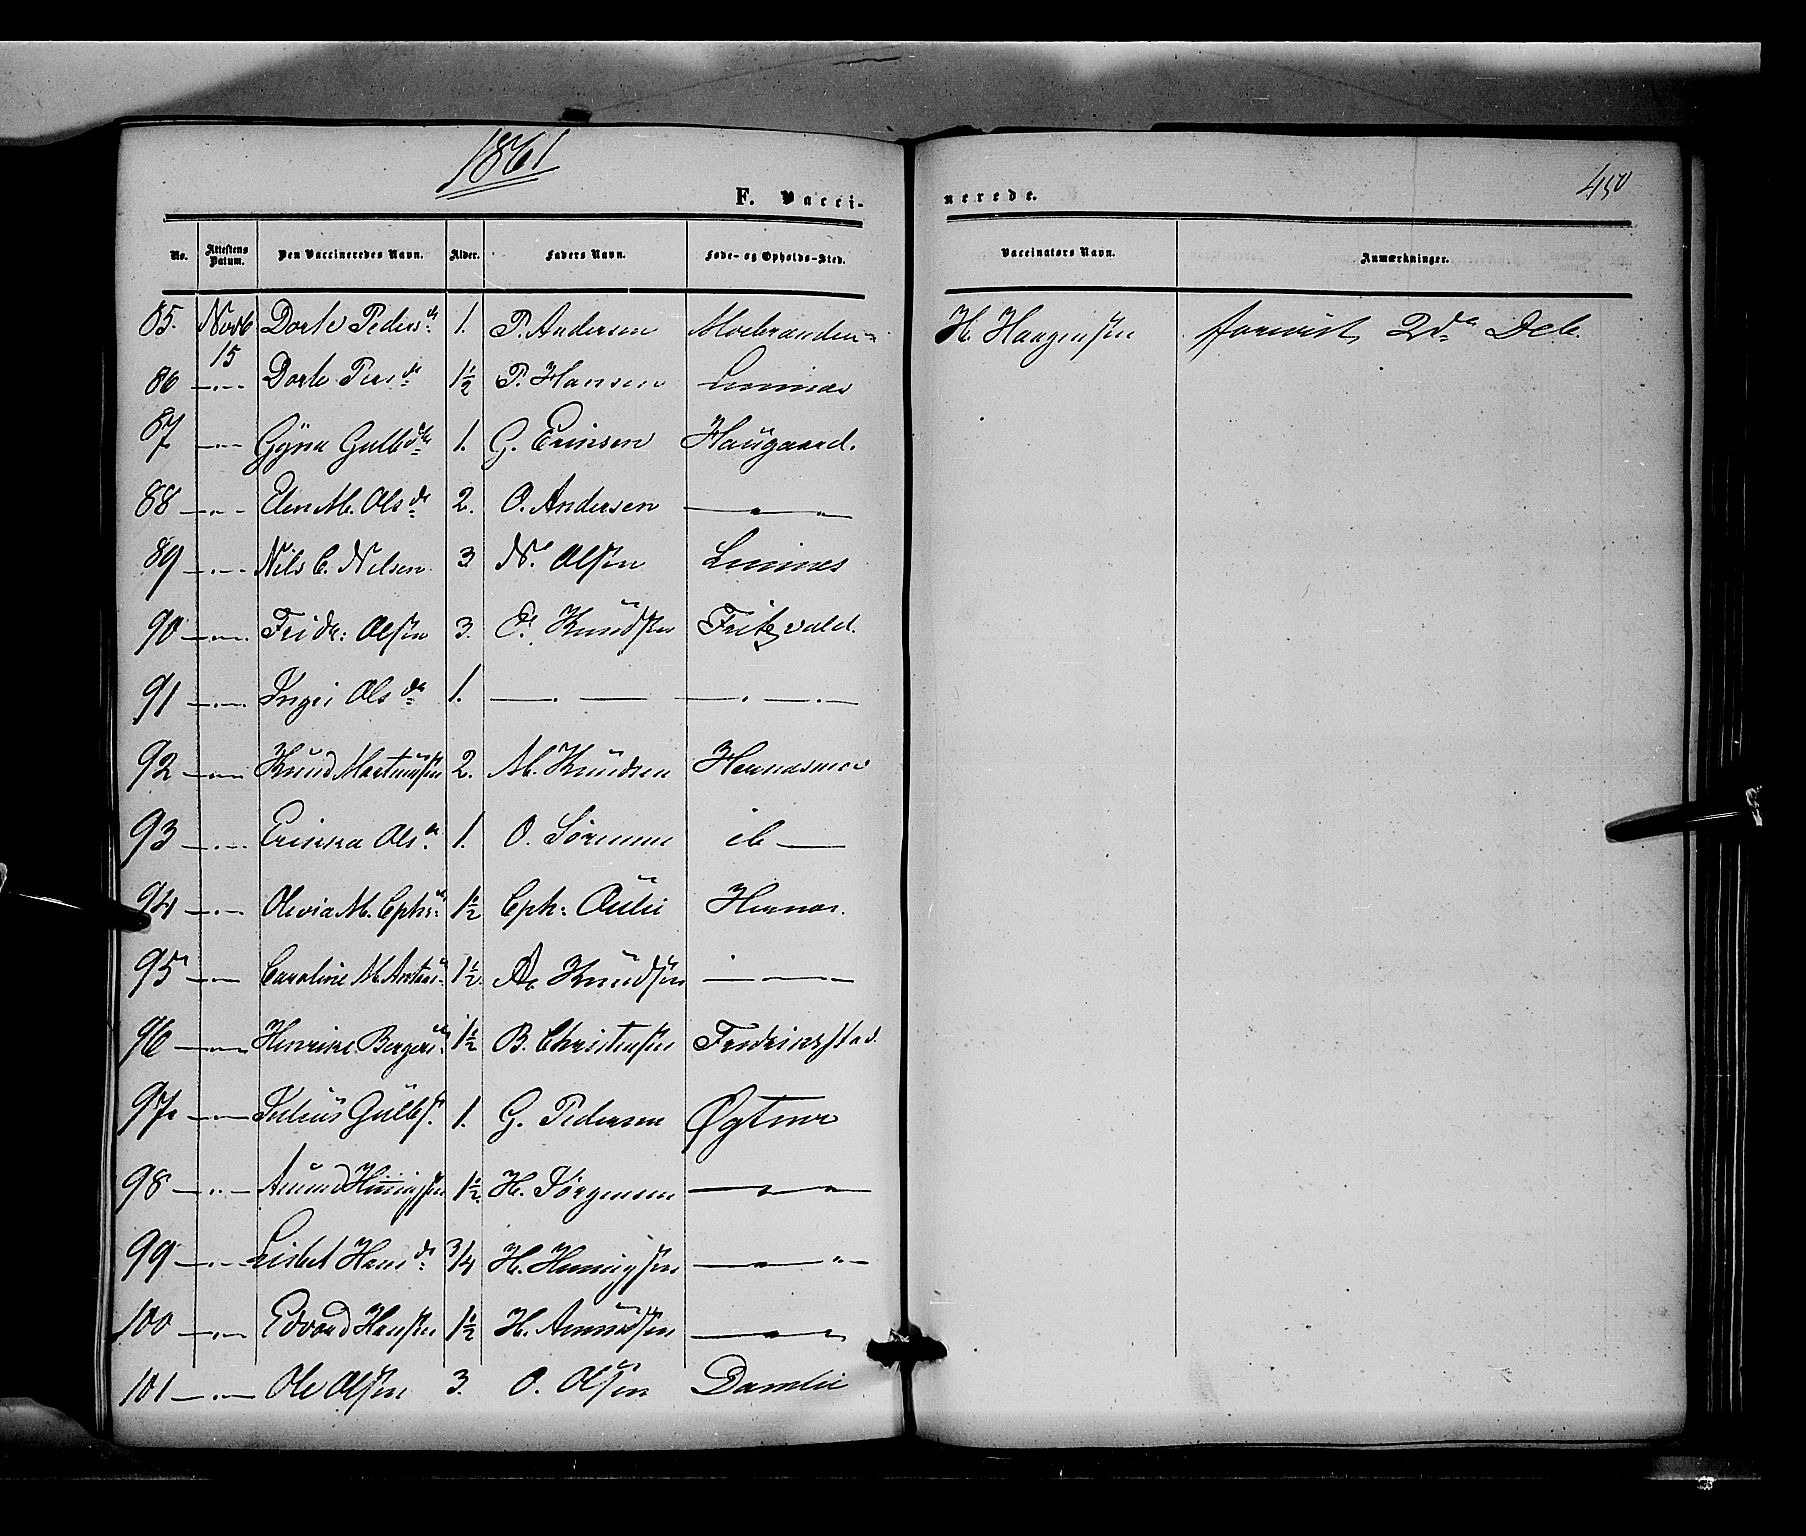 1861
450
F. Vacci-
nerede.
No. Attestens Datum. Den Vaccineredes Navn. Alder. Faders Navn. Føde- og Opholds-Sted. Vaccinators Navn. Anmærkninger.
85. Novb 15 Dorte Peders d. 1. P. Andersen H. Haagensen forevist 2d Deb.
86 —„— Dorte Pers d. 1½ P. Hansen
87 —„— Gyna Gulb d. 1. G. Erinsen Haugaard.
88 —„— Elen M. Ols d. 2. O. Andersen —„—
89 —„— Nils C. Nilsen 3 N. Olsen
90 —„— Fridr: Olsen 3. O. Knudsen Fritzvold.
91 —„— Inger Ols d. 1. — — —„—
92 —„— Knud Martinsen 2. M. Knudsen
93 —„— Ols d. 1. O. Sörensen ib —
94 —„— Olevia M. Ephr: 1½ Eph: Hernes.
95 —„— Caroline M. 1½ A. Knudsen —„—
96 —„— Henrikke Bergers 1½ B. Christensen Fredrikstad.
97. —„— Julius Gulbs. 1. G. Pedersen
98 —„— Amund Henningsen 1½ H. Jørgensen —„—
99 —„— Lisbet Hans d. 3/4 H. Henningsen —„—
100 —„— Edvard Hansen 1½ H. Amundsen —„—
101 —„— Ole Olsen 3. O. Olsen Damlie